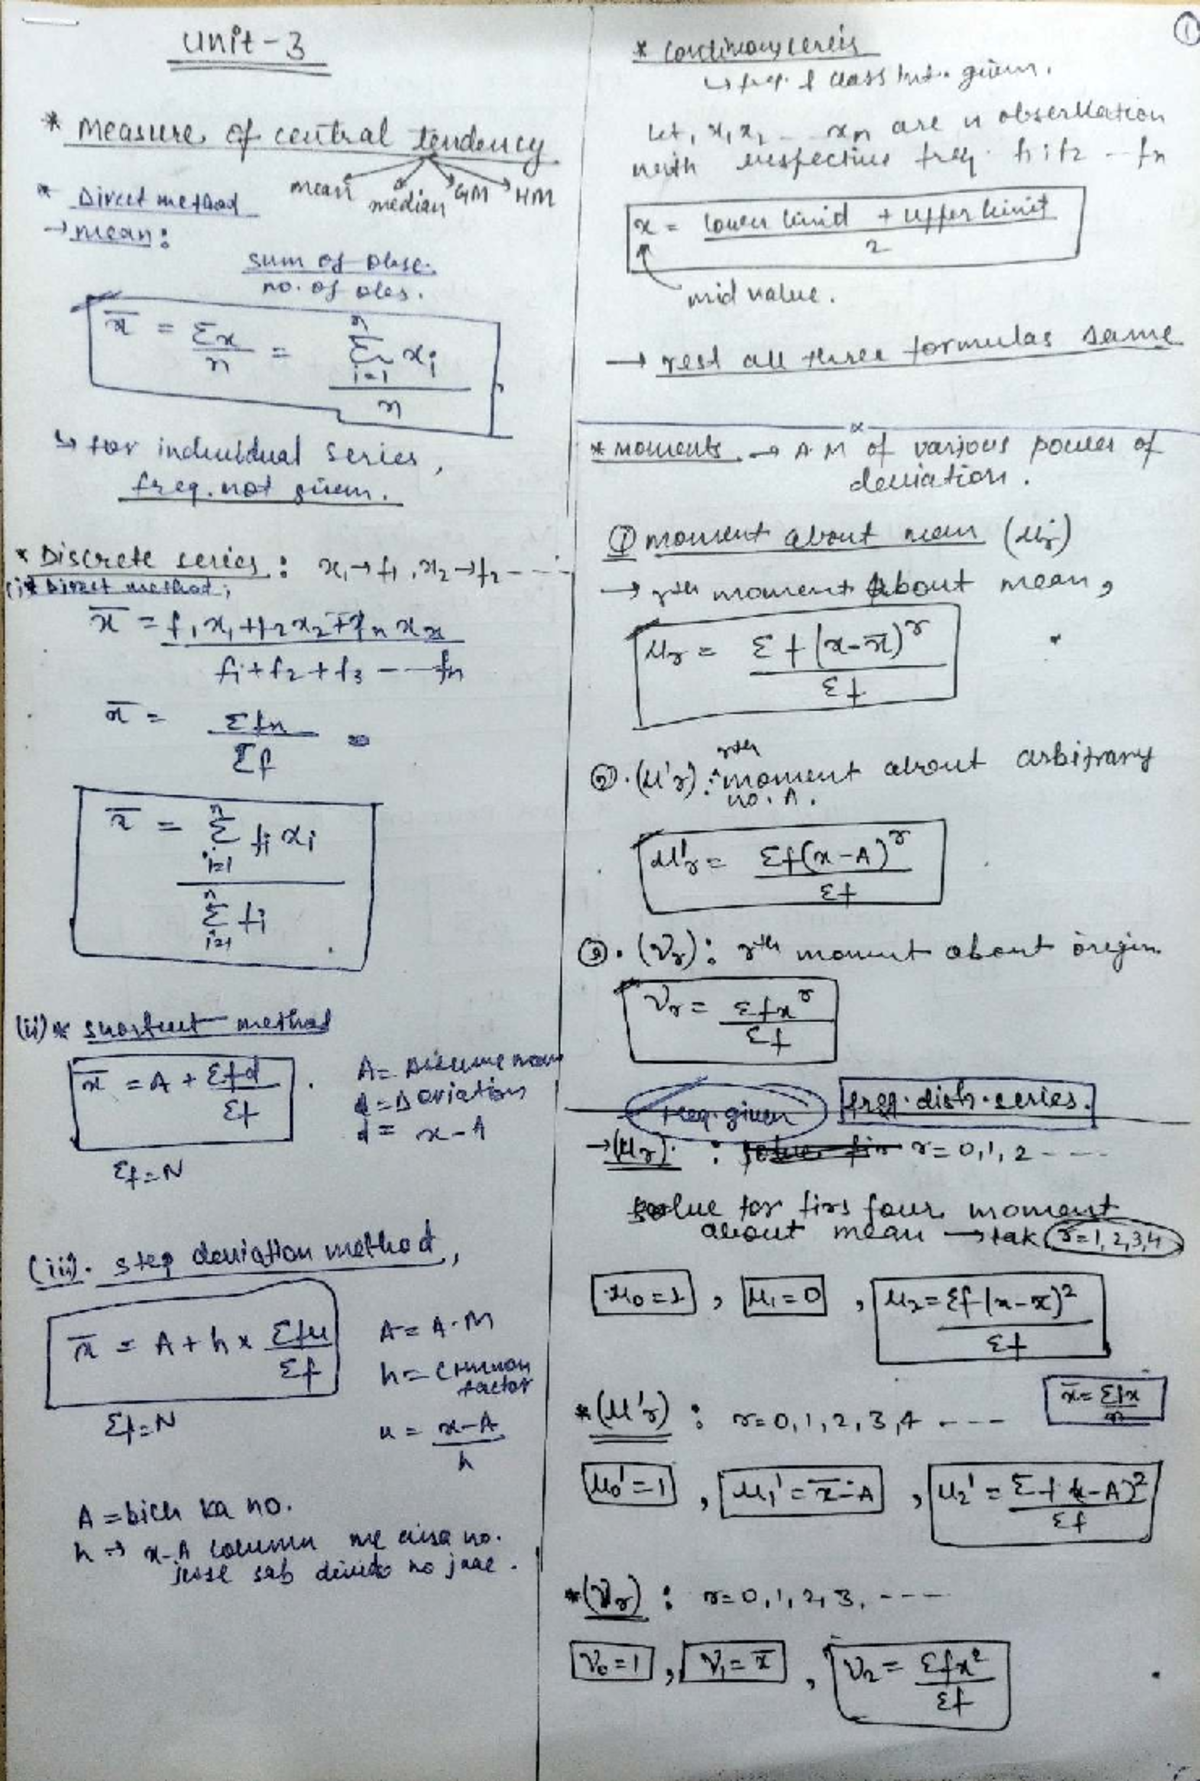 unit-3
* Measure of central tendency
mean median GM HM
* Direct method
→ mean:
sum of obse.
no. of obs.
x̄ = Σx/n = Σ_{i=1}^{n} xi / n
↳ for individual series,
freq. not given.
* Discrete series: x₁→f₁, x₂→f₂ ----
(i)* Direct method;
x̄ = f₁x₁+f₂x₂+fₙxₙ
f₁+f₂+f₃ ---- fₙ
x̄ = Σfx/Σf =
x̄ = Σ_{i=1}^{n} fi xi / Σ_{i=1}^{n} fi
(ii)* shortcut method
x̄ = A + Σfd/Σf .
A = Assume mean
d = Deviation
d = x-A
Σf=N
(iii). step deviation method,
x̄ = A + h × Σfu/Σf
A = A.M
h = common factor
u = x-A/h
Σf=N
A = bich ka no.
h → x-A column me aisa no.
jisse sab divide ho jaae.
①
* Continuous series
↳ freq. & class int. given.
let, x₁ x₂ -- xn are n observation
with respective freq. f₁ f₂ -- fn
x = lower limit + upper limit / 2
mid value.
→ rest all three formulas same
x
* moments → A.M of various power of
deviation.
① moment about mean (μr)
→ rth moment about mean,
μr = Σf(x-x̄)^r / Σf
②. (μ'r): rth moment about arbitrary
no. A.
μ'r = Σf(x-A)^r / Σf
③. (νr): rth moment about origin
νr = Σfx^r / Σf
freq. given freq. distr. series.
→(μr). : r=0,1,2 ----
solve for firs four moment
about mean → tak r=1,2,3,4
μ₀=1, μ₁=0, μ₂=Σf(x-x̄)²/Σf
x̄=Σfx/n
*(μ'r): r=0,1,2,3,4 ----
μ₀'=1, μ₁'=x̄-A, μ₂'=Σf(x-A)²/Σf
*(νr): r=0,1,2,3, ----
ν₀=1, ν₁=x̄, ν₂=Σfx²/Σf